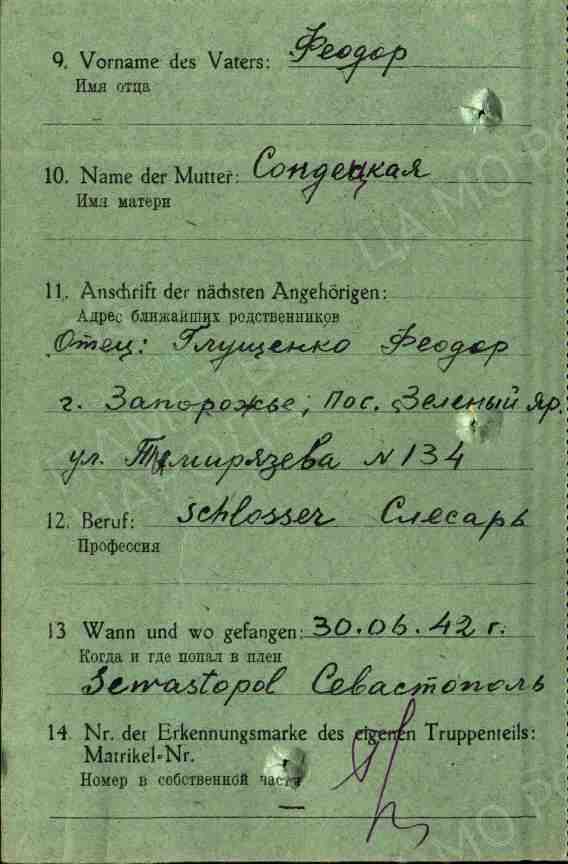 9. Vorname des Vaters: Феодор
Имя отца
10. Name der Mutter: Сондецкая
Имя матери
11. Anschrift der nächsten Angehörigen:
Адрес ближайших родственников
Отец: Глущенко Феодор
г. Запорожье, пос. Зеленый Яр.
ул. Тимирязева N 134
12. Beruf: Schlosser Слесарь
Профессия
13 Wann und wo gefangen: 30.06.42 г.
Когда и где попал в плен
Sewastopol Севастополь
14. Nr. der Erkennungsmarke des eigenen Truppenteils:
Matrikel-Nr.
Номер в собственной части
—